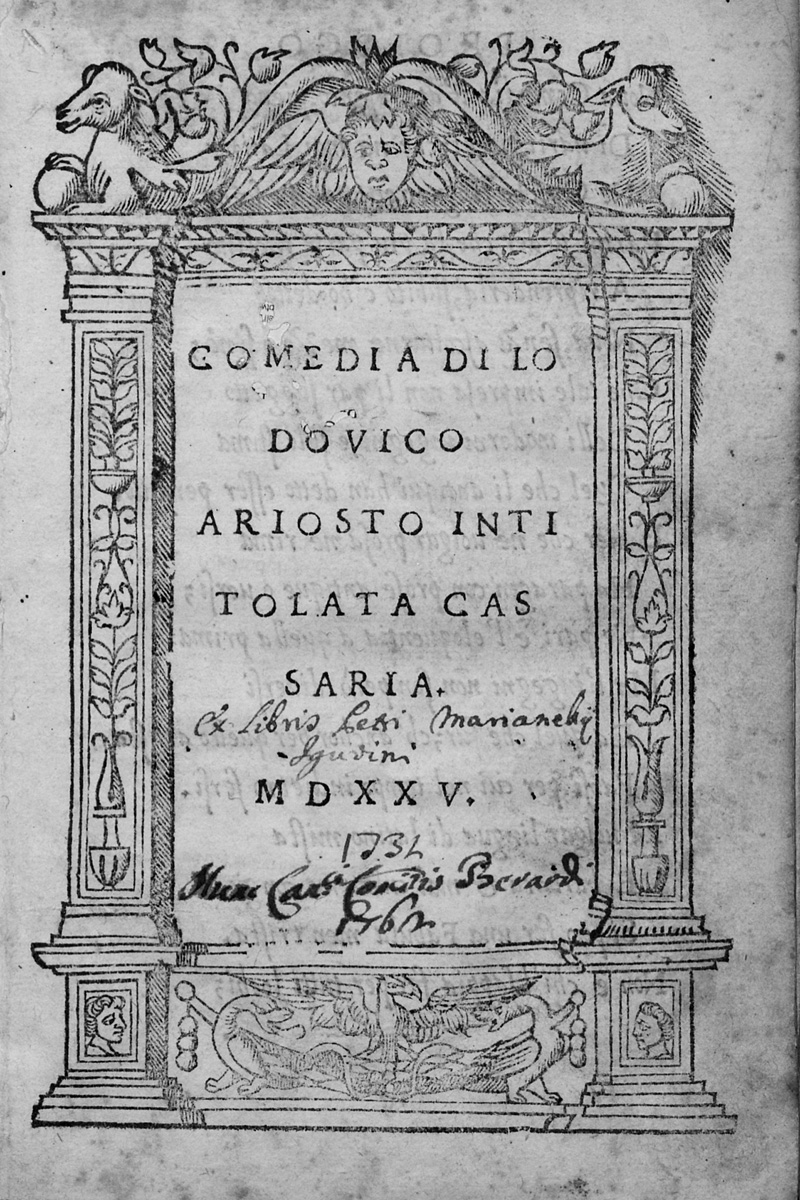 COMEDIA DI LO
DOVICO
ARIOSTO INTI
TOLATA CAS
SARIA.
Ex Libris Petri Marianelij
Iguvini
MDXXV.
1731
Nunc Comitis Berardi